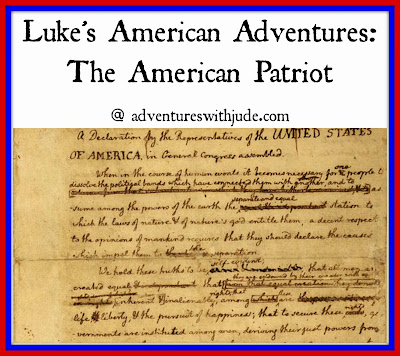 Luke's American Adventures:
The American Patriot
@ adventureswithjude.com
A Declaration by the Representatives of the UNITED STATES
OF AMERICA, in General Congress assembled.
When in the course of human events it becomes necessary for one people to
dissolve the political bands which have connected them with another, and to as
separate and equal
sume among the powers of the earth the station to
which the laws of nature & of nature's god entitle them, a decent respect
to the opinions of mankind requires that they should declare the causes
which impel them to the separation
self-evident
We hold these truths to be that all men are
created equal that
inherent & inalienable, among which are
life, & liberty, & the pursuit of happiness; that to secure these rights, go
vernments are instituted among men, deriving their just powers from